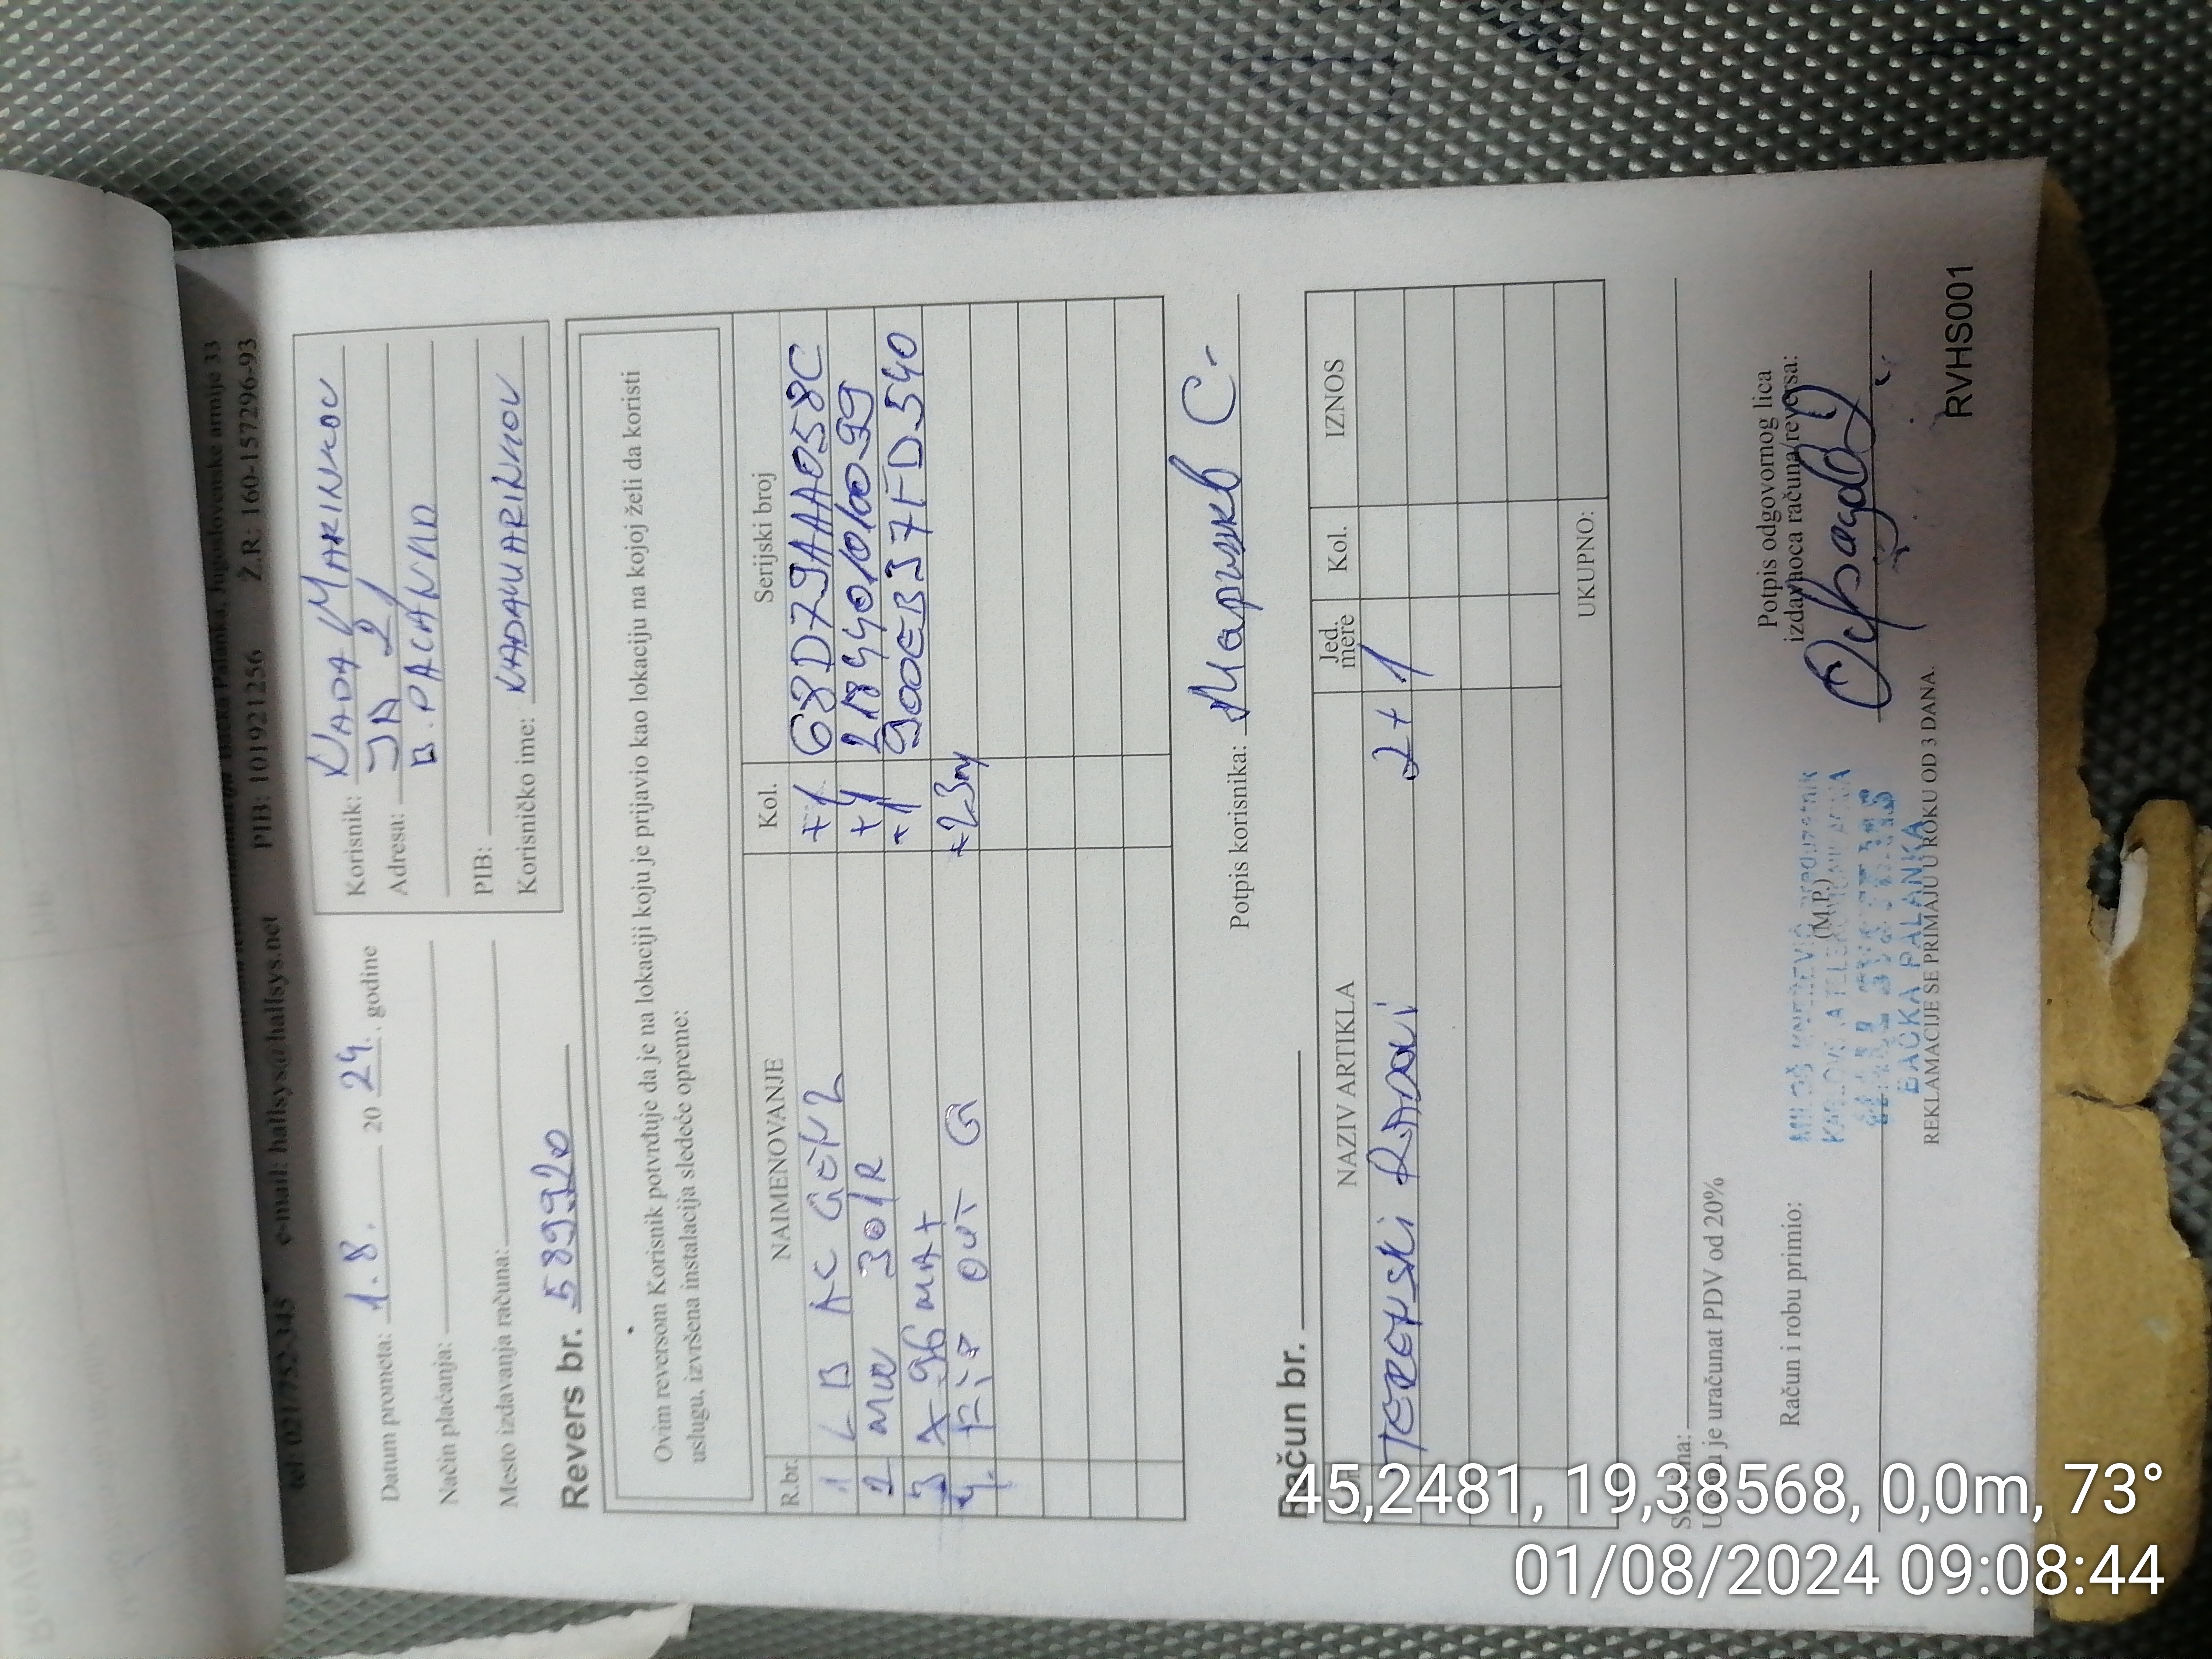 Bačka Palanka, Jugoslovenske armije 33
tel 021/752-345 e-mail: hallsys@hallsys.net PIB: 101921256 Ž.R: 160-157296-93
Datum prometa: 1.8. 20 24. godine
Način plaćanja:
Mesto izdavanja računa:
Korisnik: NADA MARINKOV
Adresa: JA 21
B. PALANKA
PIB:
Korisničko ime: NADAMARINKOV
Revers br. 589920
Ovim reversom Korisnik potvrđuje da je na lokaciji koju je prijavio kao lokaciju na kojoj želi da koristi
uslugu, izvršena instalacija sledeće opreme:
R.br. NAIMENOVANJE Kol. Serijski broj
1 LB AC GEN2 +1 68D79AAA058C
2 MW 301R +1
3 X-96 MAX +1 900EB37FD540
4. FTP OUT G +23m
Potpis korisnika: Маринков С.
Račun br.
NAZIV ARTIKLA Jed. mere Kol. IZNOS
TERENSKI RADOVI 2+1
UKUPNO:
Slovima:
U cenu je uračunat PDV od 20%
Račun i robu primio:
(M.P.)
Potpis odgovornog lica
izdavaoca računa/reversa:
BAČKA PALANKA
REKLAMACIJE SE PRIMAJU U ROKU OD 3 DANA.
RVHS001
45,2481, 19,38568, 0,0m, 73°
01/08/2024 09:08:44